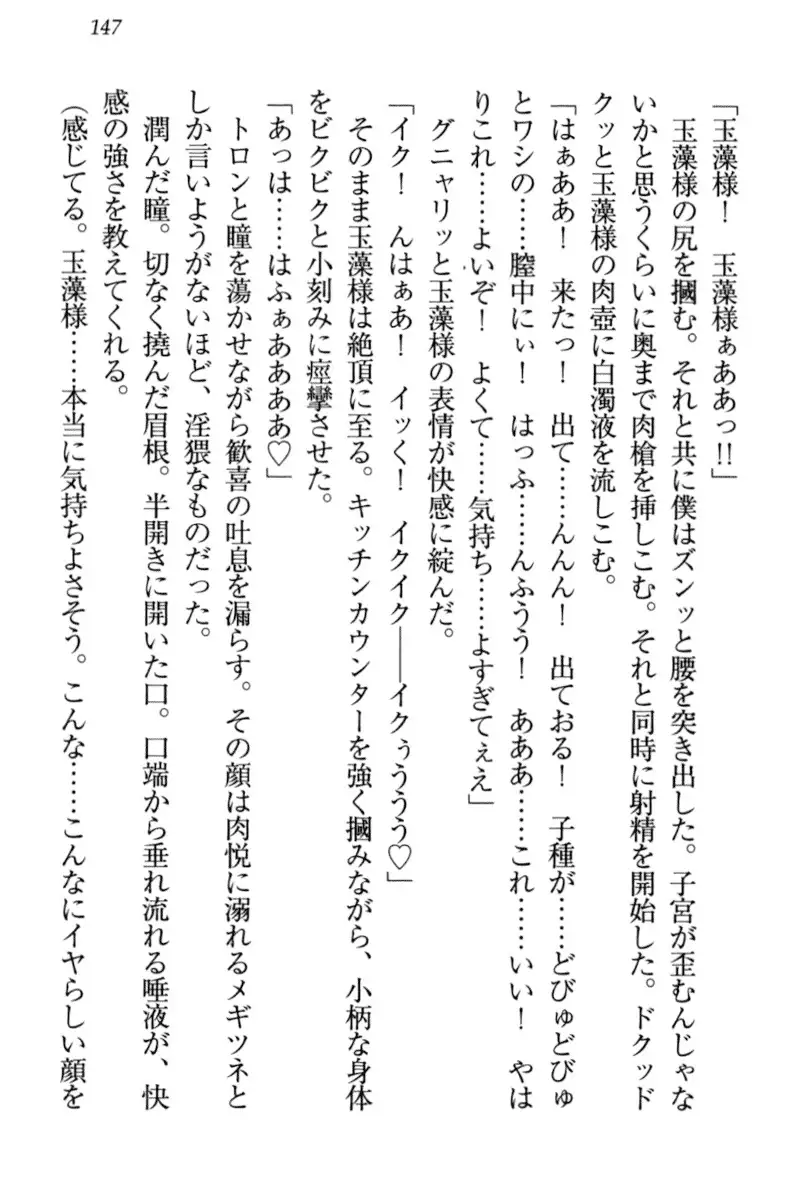 147
「玉藻様！　玉藻様ぁああっ!!」
　玉藻様の尻を摑む。それと共に僕はズンッと腰を突き出した。子宮が歪むんじゃな
いかと思うくらいに奥まで肉槍を挿しこむ。それと同時に射精を開始した。ドクッド
クッと玉藻様の肉壺に白濁液を流しこむ。
「はぁああ！　来たっ！　出て……んんん！　出ておる！　子種が……どびゅどびゅ
とワシの……膣中にぃ！　はっふ……んふうう！　あああ……これ……いい！　やは
りこれ……よいぞ！　よくて……気持ち……よすぎてぇえ」
　グニャリッと玉藻様の表情が快感に綻んだ。
「イク！　んはぁあ！　イッく！　イクイク――イクぅううう♡」
　そのまま玉藻様は絶頂に至る。キッチンカウンターを強く摑みながら、小柄な身体
をビクビクと小刻みに痙攣させた。
「あっは……はふぁああああ♡」
　トロンと瞳を蕩かせながら歓喜の吐息を漏らす。その顔は肉悦に溺れるメギツネと
しか言いようがないほど、淫猥なものだった。
　潤んだ瞳。切なく撓んだ眉根。半開きに開いた口。口端から垂れ流れる唾液が、快
感の強さを教えてくれる。
（感じてる。玉藻様……本当に気持ちよさそう。こんな……こんなにイヤらしい顔を